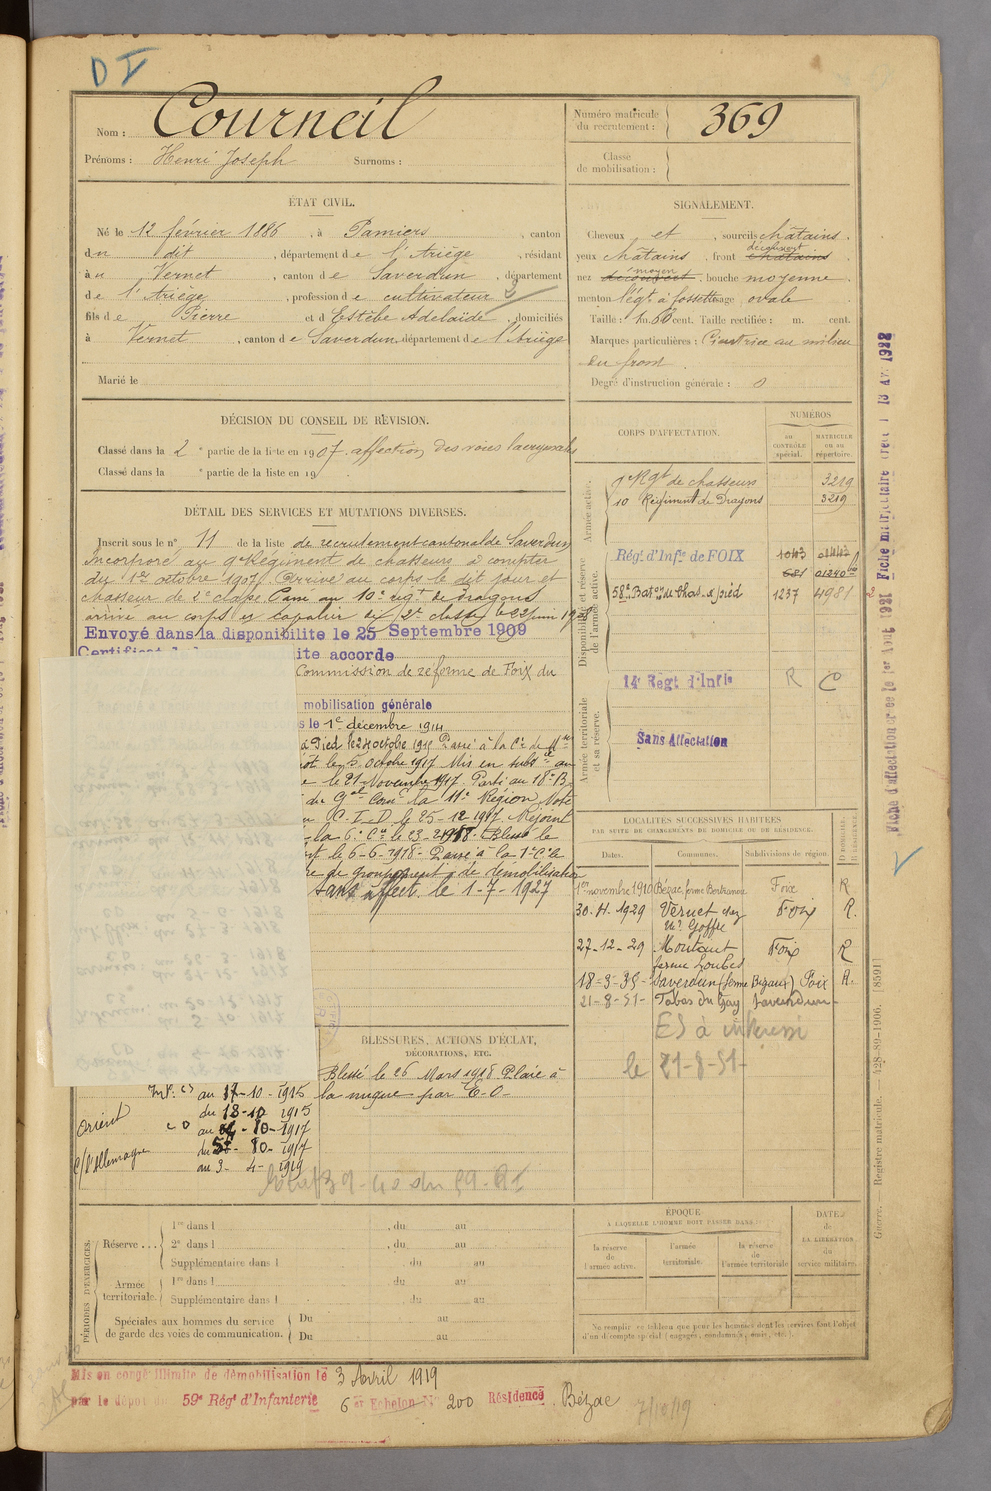 D I
Nom : Courneil
Prénoms : Henri Joseph Surnoms :
Numéro matricule du recrutement : 369
Classe de mobilisation :
ÉTAT CIVIL.
Né le 12 février 1886, à Pamiers, canton
du dit, département de l'Ariège, résidant
à u Vernet, canton de Saverdun, département
de l'Ariège, profession de cultivateur
fils de Pierre et d Estèbe Adelaïde, domiciliés
à Vernet, canton de Saverdun, département de l'Ariège
Marié le
SIGNALEMENT.
Cheveux et, sourcils châtains.
yeux châtains, front découvert châtains
nez moyen découvert, bouche moyenne
menton légt à fossette visage ovale
Taille : 1 m. 60 cent. Taille rectifiée : m. cent.
Marques particulières : Cicatrice au milieu
du front.
Degré d'instruction générale : 0
DÉCISION DU CONSEIL DE RÉVISION.
Classé dans la 2e partie de la liste en 1907. affection des voies lacrymales
Classé dans la e partie de la liste en 19
CORPS D'AFFECTATION.
NUMÉROS
AU CONTRÔLE SPÉCIAL.
MATRICULE OU AU RÉPERTOIRE.
Armée active.
9e Rgt de chasseurs 3219
10 Régiment de Dragons 3219
Disponibilité et réserve de l'armée active.
Régt d'Infie de FOIX 1043
681 01240
58e Baton de Chas. à pied 1237 4981
Armée territoriale et sa réserve.
14e Régt d'Infie R C
Sans Affectation
DÉTAIL DES SERVICES ET MUTATIONS DIVERSES.
Inscrit sous le n° 11 de la liste de recrutement cantonal de Saverdun
Incorporé au 9e Régiment de chasseurs à compter
du 1er octobre 1907. Arrivé au corps le dit jour et
chasseur de 2e classe. Passé au 10e régt de dragons
arrivé au corps et cavalier de 2e classe le 22 juin
Envoyé dans la disponibilité le 25 Septembre 1909
Certificat de ité accordé
Commission de réforme de Foix du
mobilisation générale
s le 1er décembre 1914
à Pied le 24 octobre 1915 Passé à la Cie de Mses
ôt le 5 octobre 1917 Mis en subce au
e le 21 Novembre 1917. Parti au 18e B
du Gal Comt la 11e Région Note
C. I. D. le 25-12-1917 Rejoint
la 6e Cie le 23-2-1918. Blessé le
nt le 6-6-1918- Passé à la 1e Cie le
re de groupement de démobilisation
sans affect. le 1-7-1927
LOCALITÉS SUCCESSIVES HABITÉES
PAR SUITE DE CHANGEMENTS DE DOMICILE OU DE RÉSIDENCE.
Dates. Communes. Subdivisions de région. D. DOMICILE. R. RÉSIDENCE.
1er novembre 1910 Bézac, ferme Foix R
30-4-1929 Vernet chez Foix R.
27-12-29 Montaut Foix R
ferme Loubes
18-3-35- Saverdun (ferme Bézaux) Foix R.
21-8-51- Tabas du Gay Saverdun-
le 21-8-51-
BLESSURES, ACTIONS D'ÉCLAT,
DÉCORATIONS, ETC.
Blessé le 26 Mars 1918 Plaie à
la nuque par E. O.
Int. CS au 17-10-1915
du 18-10 1915
Orient CD au 10-1917
du 5-10-1917
c/ l'Allemagne au 3-4-1919
PÉRIODES D'EXERCICES.
Réserve ...
1re dans l , du au
2e dans l , du au
Supplémentaire dans l du au
Armée territoriale.
1re dans l du au
Supplémentaire dans l du au
Spéciales aux hommes du service
de garde des voies de communication.
Du au
Du au
ÉPOQUE
À LAQUELLE L'HOMME DOIT PASSER DANS :
la réserve de l'armée active.
l'armée territoriale.
la réserve de l'armée territoriale
DATE de LA LIBÉRATION du service militaire.
Ne remplir ce tableau que pour les hommes dont les services font l'objet
d'un décompte spécial (engagés, condamnés, omis, etc.).
Mis en congé illimité de démobilisation le 3 Avril 1919
par le dépôt du 59e Régt d'Infanterie 6 Echelon No 200 Résidence Bézac
7/10/19
Guerre. — Registre matricule. — 428-89-1906. [8591]